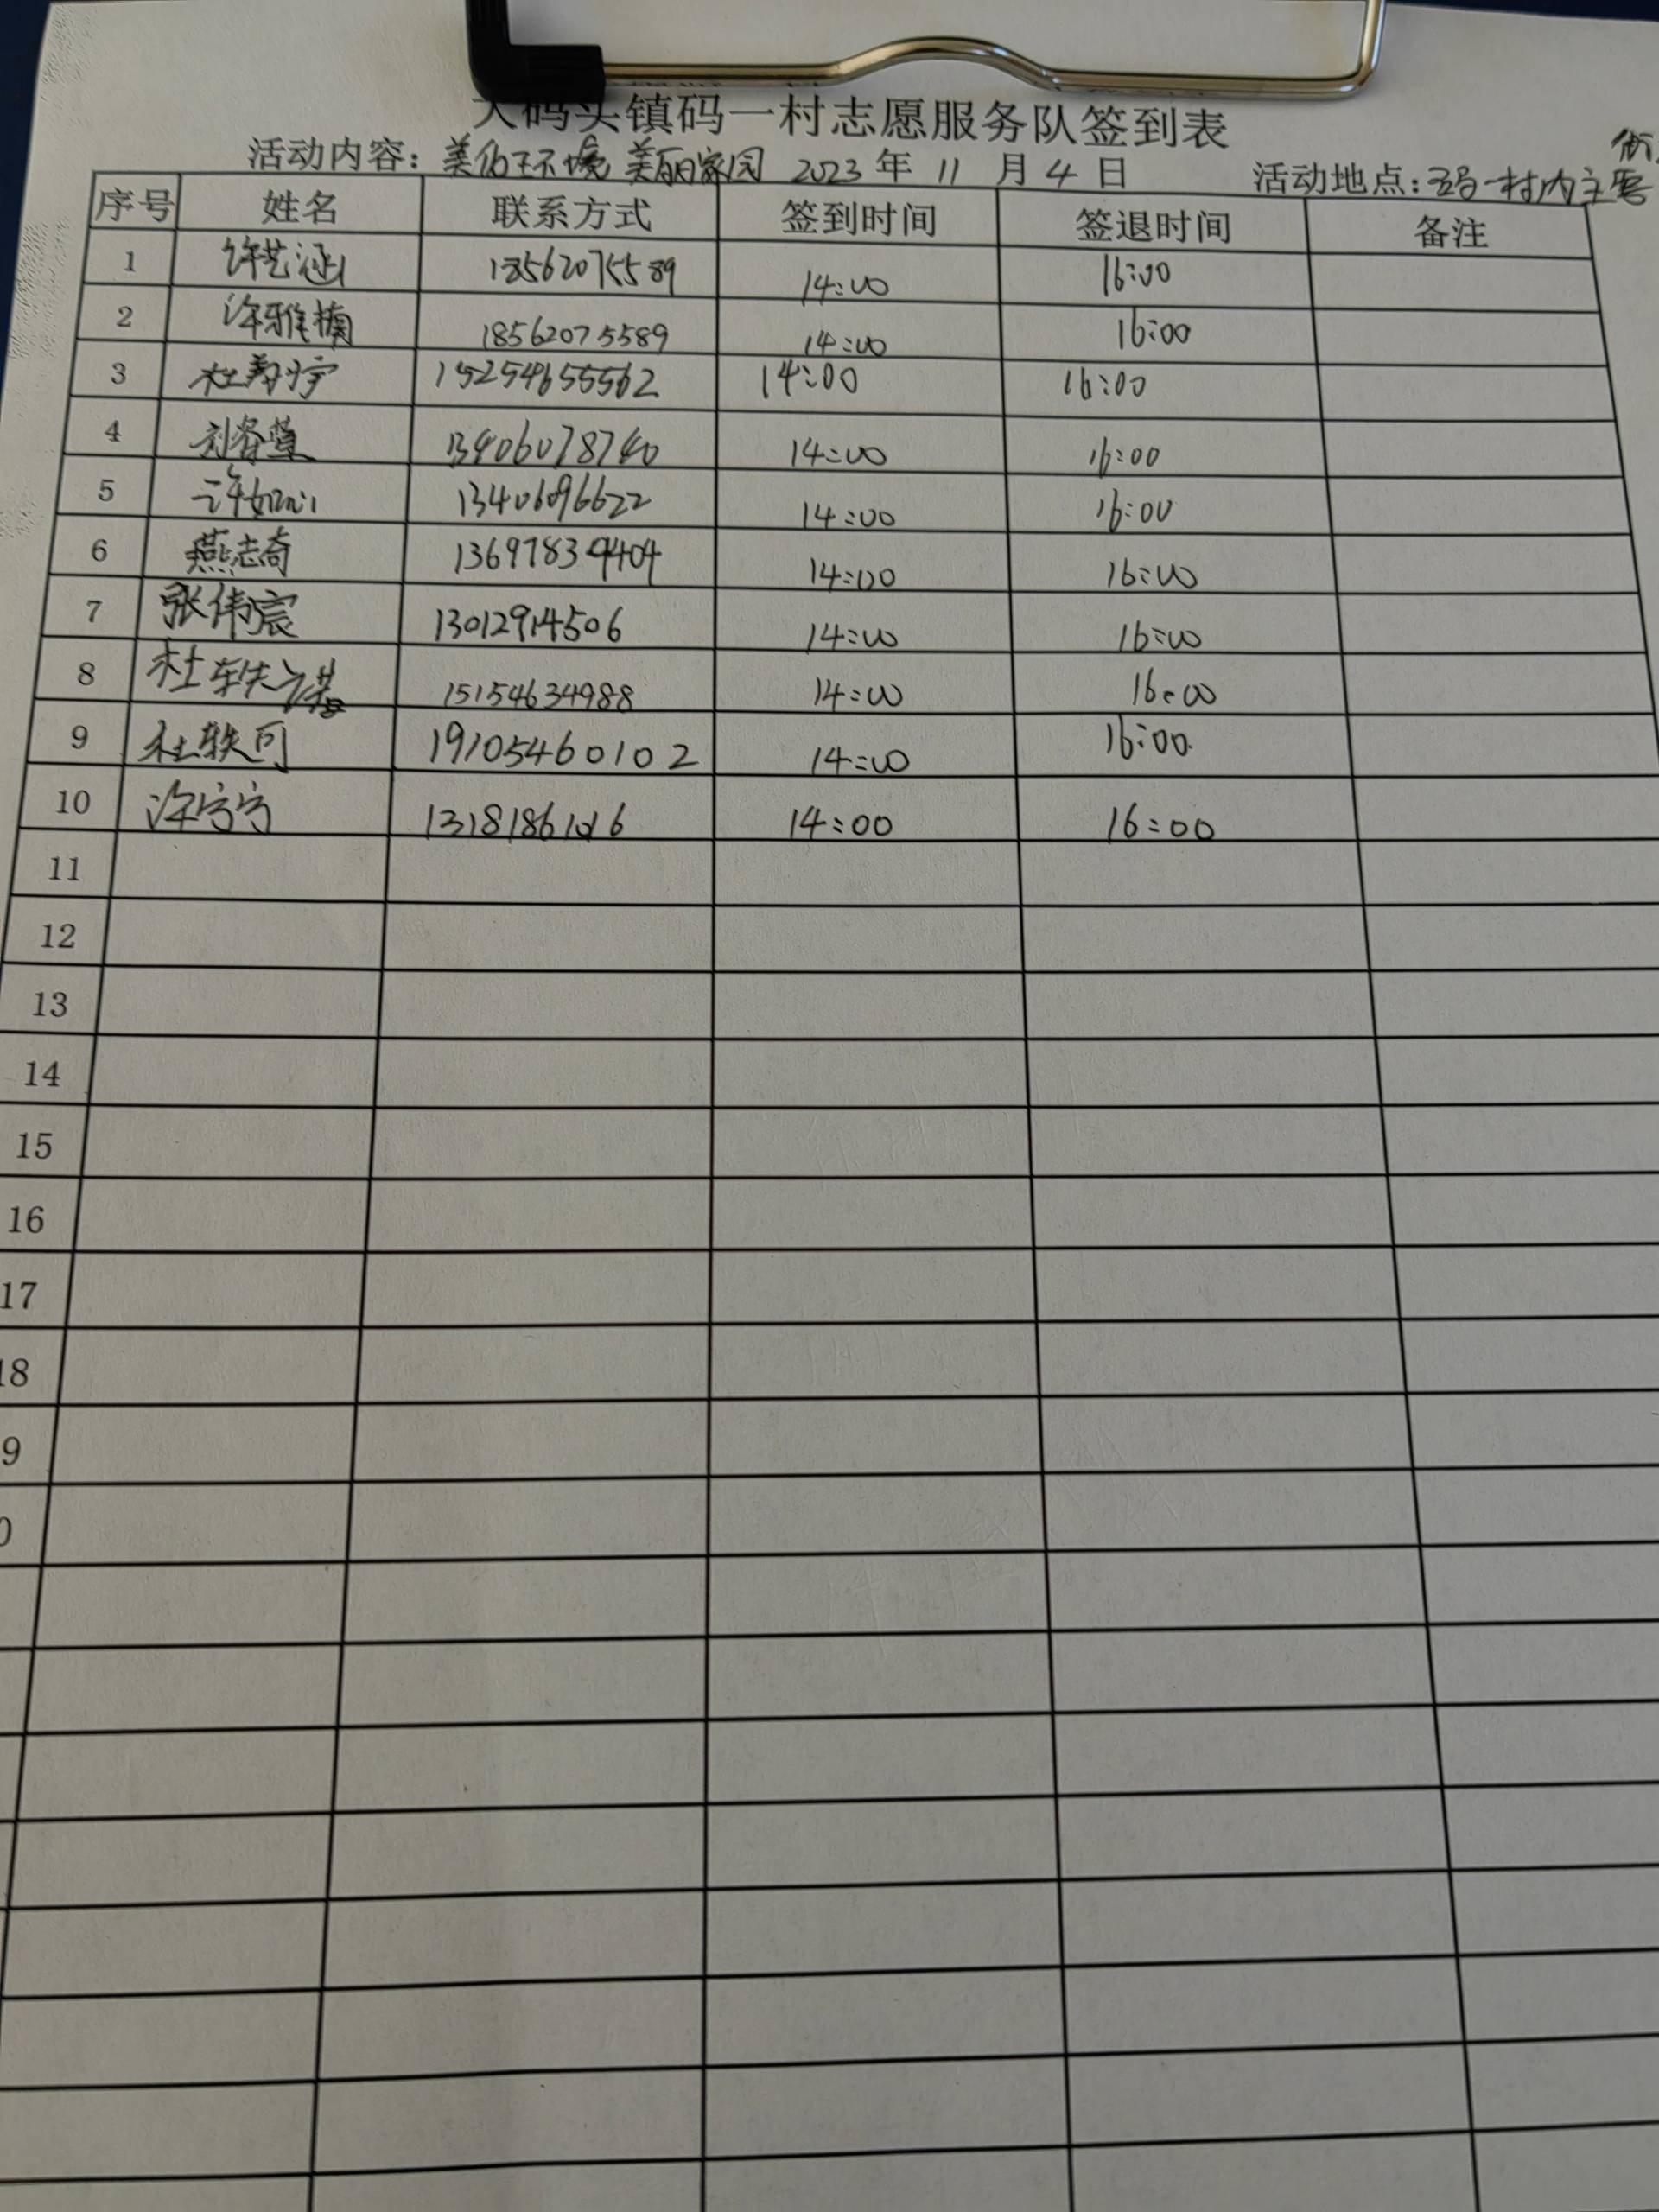 大码头镇码一村志愿服务队签到表
活动内容：美化环境 美丽家园 2023年11月4日 活动地点：码一村内主要街
序号 姓名 联系方式 签到时间 签退时间 备注
1 许艺涵 18562075589 14:00 16:00
2 许雅楠 18562075589 14:00 16:00
3 杜翔宇 15254655562 14:00 16:00
4 13406078740 14:00 16:00
5 许如心 13406096622 14:00 16:00
6 燕志奇 13697839404 14:00 16:00
7 张伟宸 13012914506 14:00 16:00
8 杜轶 15154634988 14:00 16:00
9 杜轶可 19105460102 14:00 16:00
10 14:00 16:00
11
12
13
14
15
16
17
18
9
0